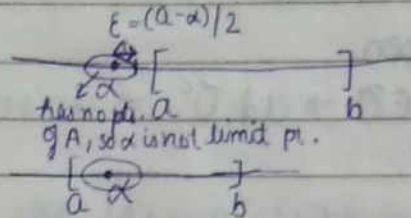 ε=(a-α)/2
α [a ]b
has no pts.
of A, so α is not limit pt.
[a α ]b